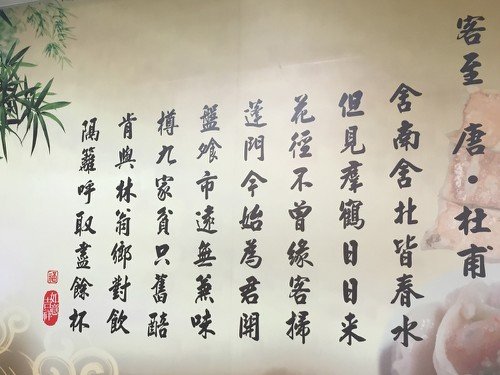 客至 唐·杜甫
舍南舍北皆春水
但見羣鶴日日来
花徑不曾緣客掃
蓬門今始為君開
盤飧市遠無兼味
樽九家貧只舊醅
肯與林翁鄉對飲
隔籬呼取盡餘杯